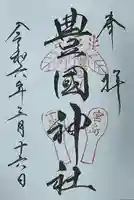 奉拝
豊國神社
令和六年三月十六日